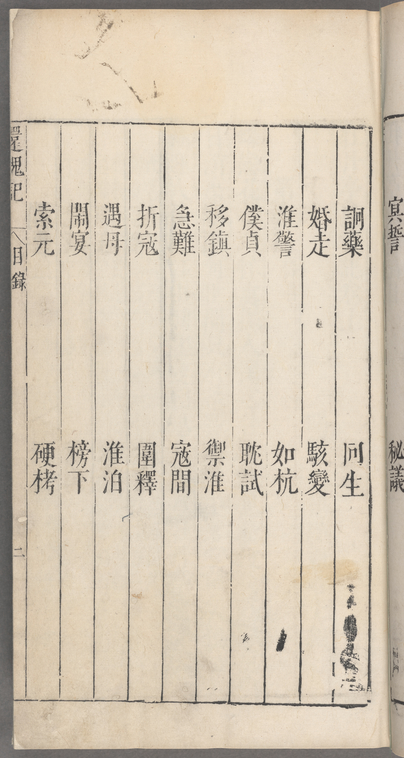 冥誓　秘議
詗藥　回生
婚走　駭變
淮警　如杭
僕貞　耽試
移鎮　禦淮
急難　寇間
折寇　圍釋
遇母　淮泊
鬧宴　榜下
索元　硬栲
還魂記　目錄　二